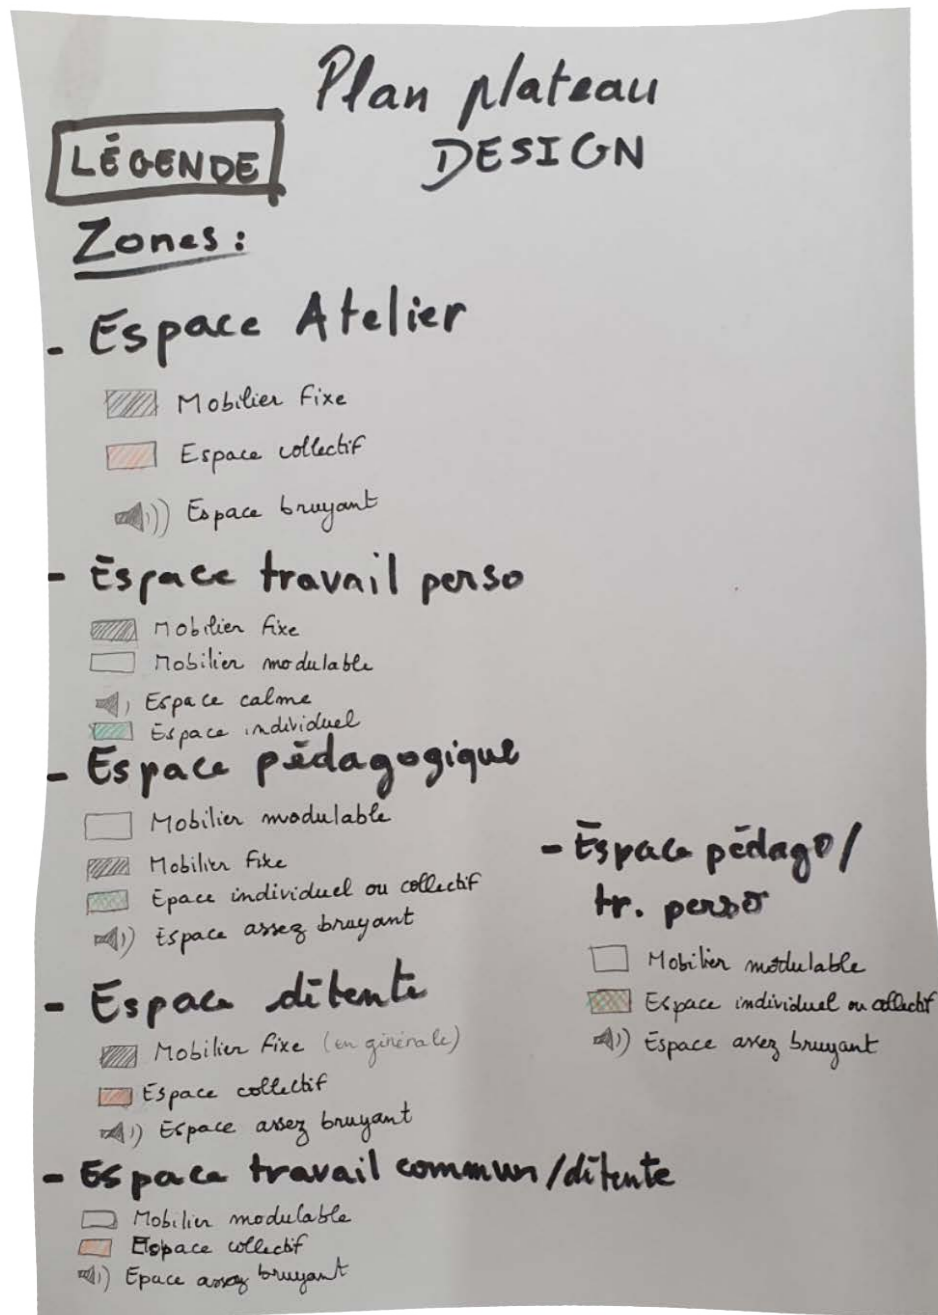 Plan plateau
DESIGN
LÉGENDE
Zones :
- Espace Atelier
Mobilier fixe
Espace collectif
Espace bruyant
- Espace travail perso
Mobilier fixe
Mobilier modulable
Espace calme
Espace individuel
- Espace pédagogique
Mobilier modulable
Mobilier fixe
Epace individuel ou collectif
Espace assez bruyant
- Espace détente
Mobilier fixe (en générale)
Espace collectif
Espace assez bruyant
- Espace travail commun/détente
Mobilier modulable
Espace collectif
Epace assez bruyant
- Espace pédago/
tr. perso
Mobilier modulable
Espace individuel ou collectif
Espace assez bruyant